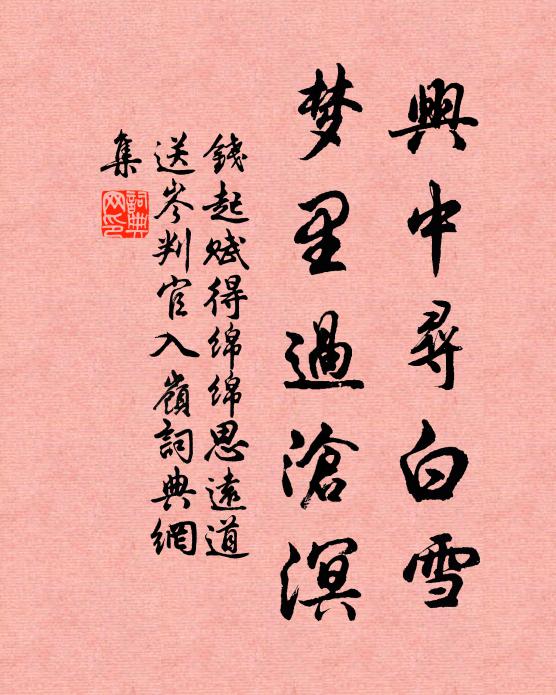 興中尋白雪
梦里過滄溟
錢起赋得綿綿思遠道
送岑判官入嶺詞典網
集
詞典
网印